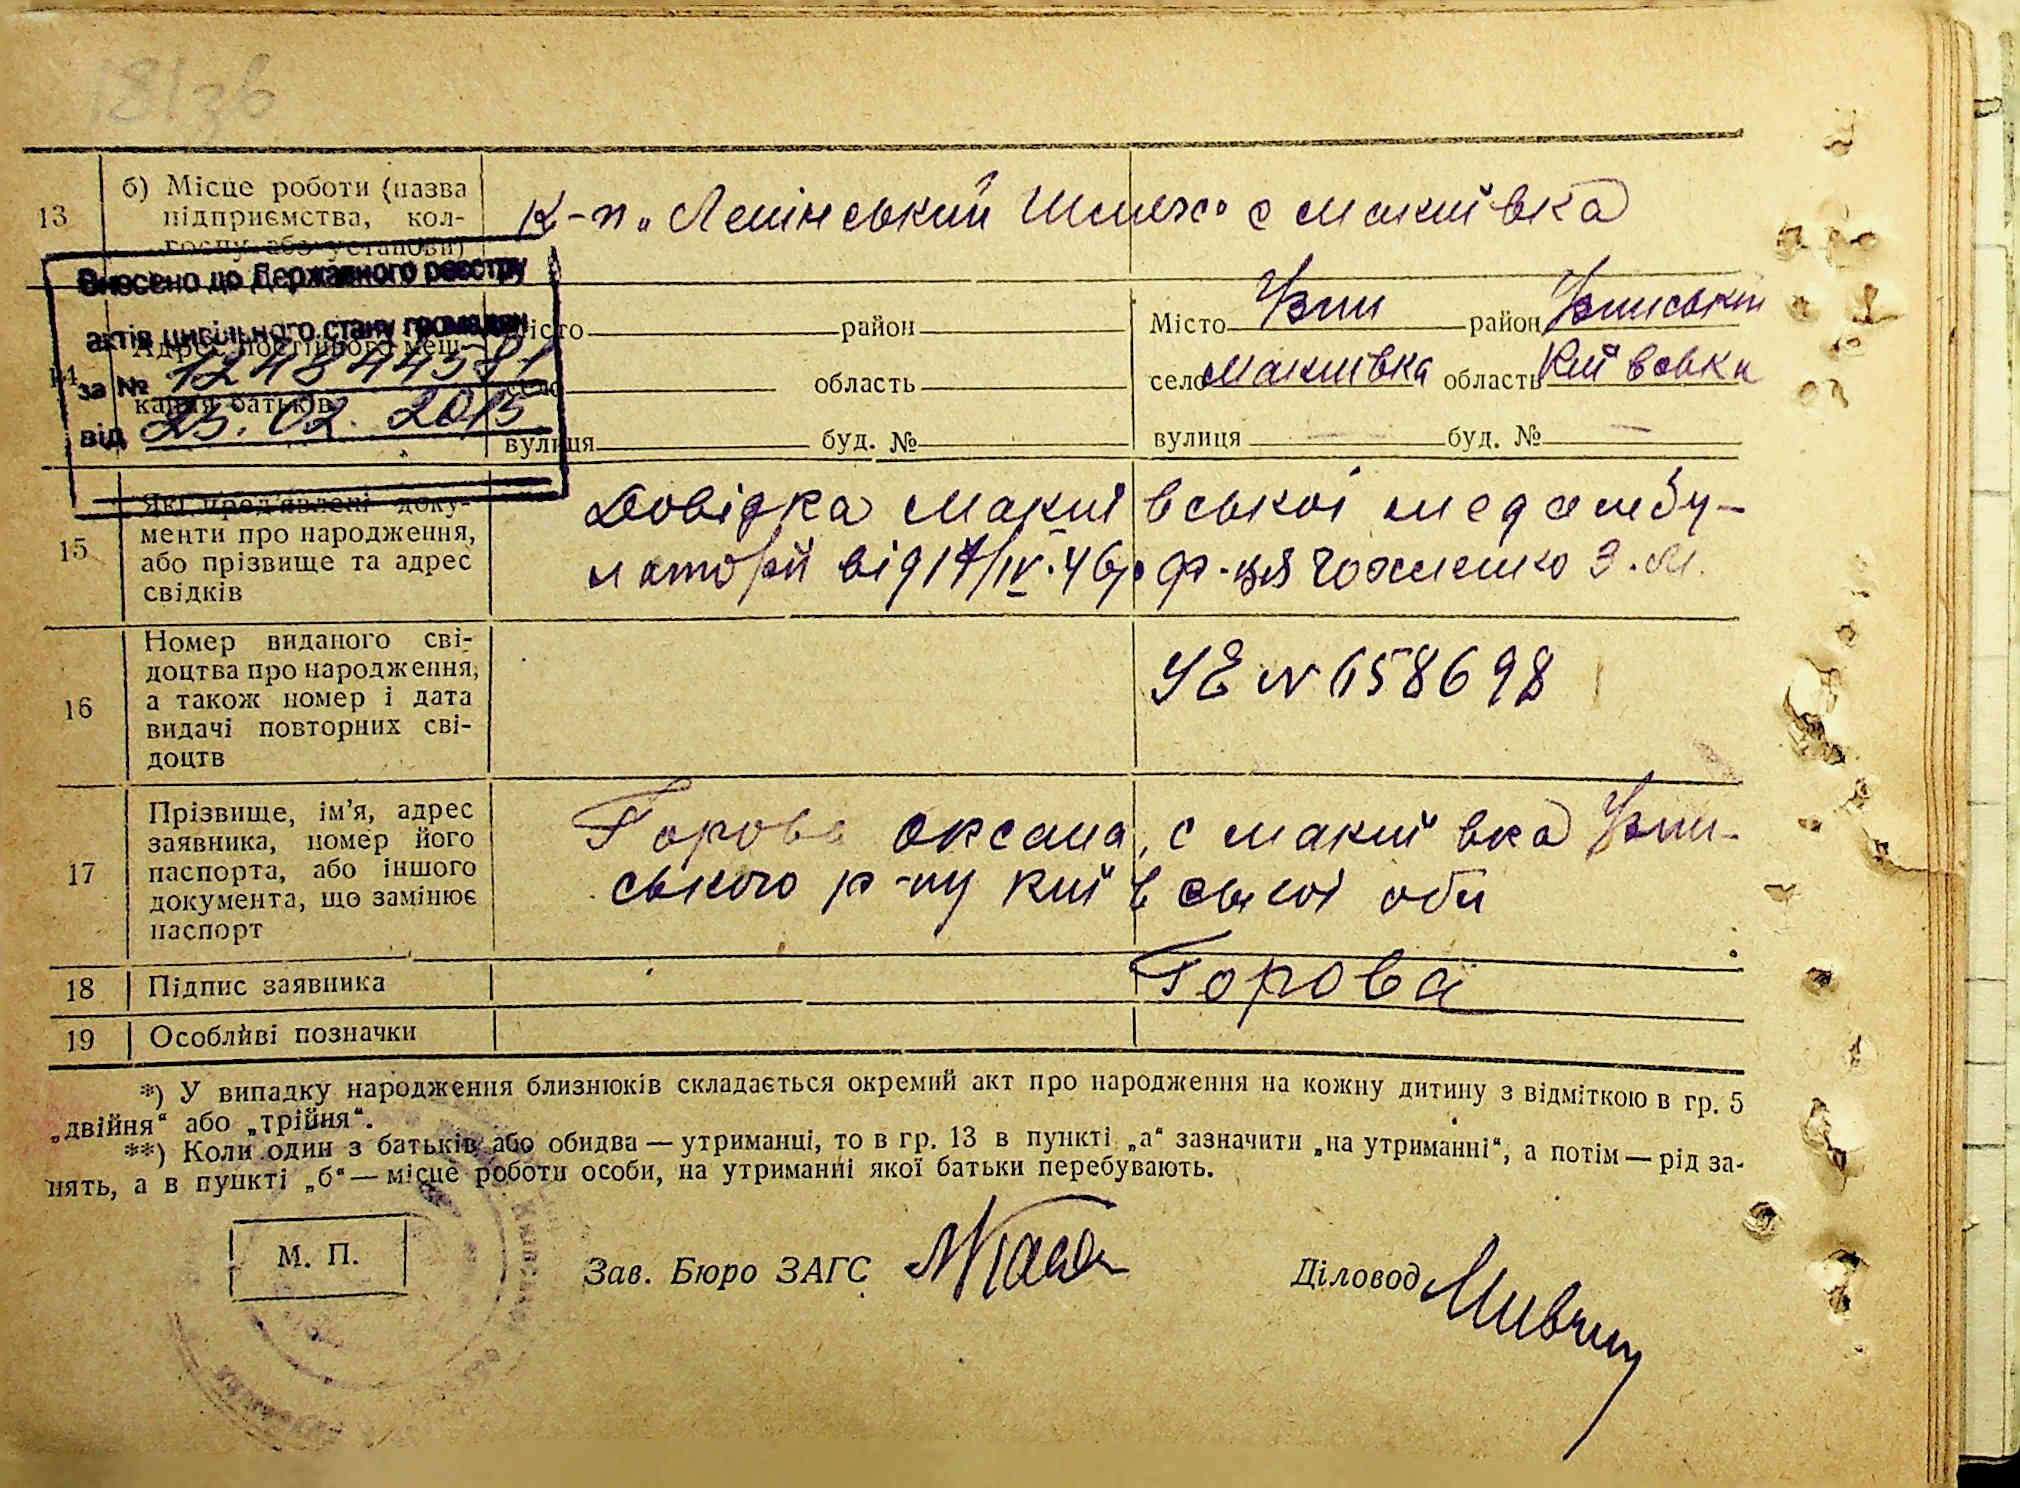 13
б) Місце роботи (назва
підприємства, кол-
госпу або установи)
к-п „Ленінський Шлях" с Макиївка
Внесено до Державного реєстру
актів цивільного стану громадян
за №
від 25. 02. 2015
14
Адрес постійного меш-
кання батьків
Місто район
село область
вулиця буд. №
Місто Узин район Узинський
село Макиївка область Київська
вулиця — буд. № —
15
Які пред'явлені доку-
менти про народження,
або прізвище та адрес
свідків
Довідка Макиївської медамбу-
латорії від 17/IV.46р ф-ця З.М.
16
Номер виданого сві-
доцтва про народження,
а також номер і дата
видачі повторних сві-
доцтв
УЕ N 658698
17
Прізвище, ім'я, адрес
заявника, номер його
паспорта, або іншого
документа, що замінює
паспорт
Горова Оксана, с Макиївка Узин-
ського р-ну Київської обл
18
Підпис заявника
Горова
19
Особливі позначки
*) У випадку народження близнюків складається окремий акт про народження на кожну дитину з відміткою в гр. 5
„двійня" або „трійня".
**) Коли один з батьків або обидва — утриманці, то в гр. 13 в пункті „а" зазначити „на утриманні", а потім — рід за-
нять, а в пункті „б" — місце роботи особи, на утриманні якої батьки перебувають.
М. П.
Зав. Бюро ЗАГС
Діловод